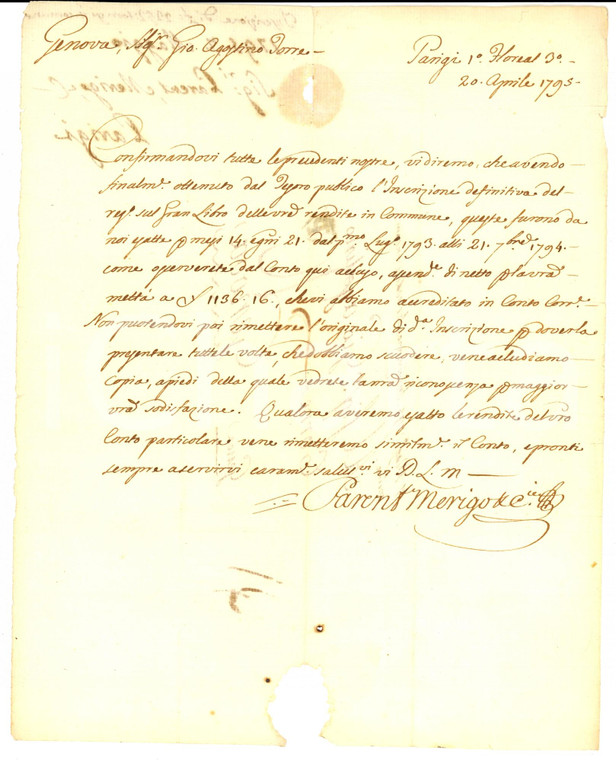 Genova, Sig.r Gio. Agostino Torre
Parigi 1.o Floreal 3.o
20. Aprile 1795
Confirmandovi tutte le precedenti nostre, vi diremo, che avendo
finalm.e ottenuto dal Tesoro publico l'Inscrizione definitiva del
sul Gran Libro delle vre rendite in Commune, queste furono da
noi esatte p mesi 14. egni 21. dal p.mo Lug.o 1793. alli 21. 7bre 1794.
come osserverete dal Conto quì acluso, di netto p la vra
mettà a 1136. 16., che vi abbiamo accreditato in Conto Corr.e
Non puotendovi poi rimettere l'originale di d.a Inscrizione p doverla
presentare tutte le volte, che dobbiamo scuodere, vene acludiamo
Copia, a piedi della quale vedrete la nra riconoscenza p maggior
vra sodisfazione. Qualora averemo esatto le rendite del vro
Conto particolare vene rimetteremo similm.e il Conto, e pronti
sempre a servirvi caram.e salut.vi vi B. L. M
Parent Merigo & C.ie
Parigi